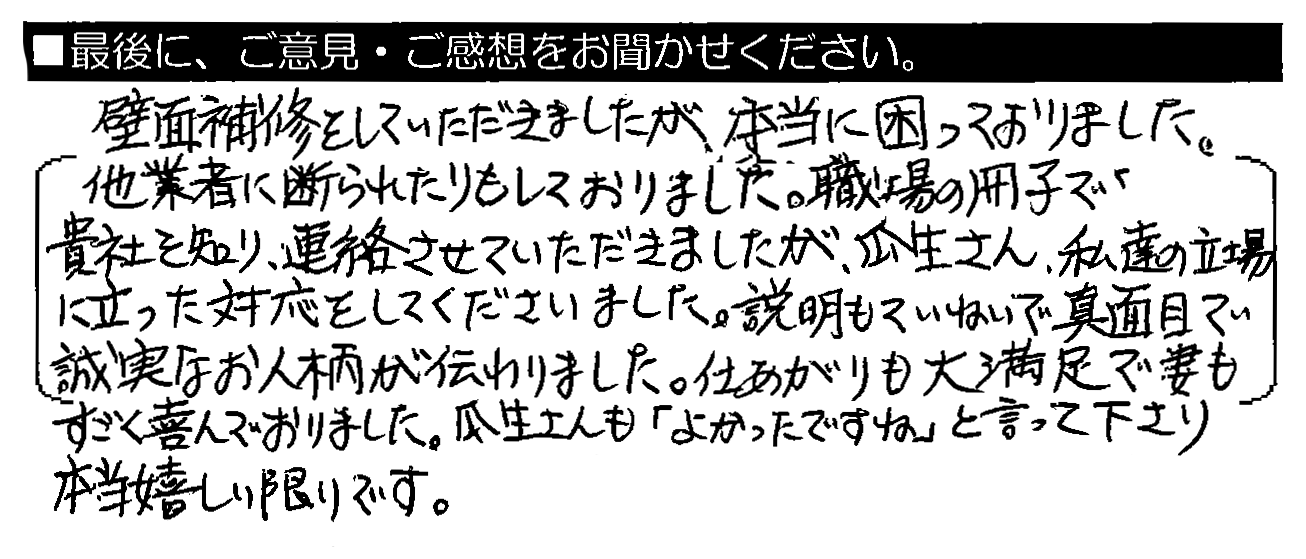 ■最後に、ご意見・ご感想をお聞かせください。
壁面補修をしていただきましたが、本当に困っておりました。
他業者に断られたりもしておりました。職場の冊子で
貴社を知り、連絡させていただきましたが、瓜生さん、私達の立場
に立った対応をしてくださいました。説明もていねいで真面目で
誠実なお人柄が伝わりました。仕あがりも大満足で妻も
すごく喜んでおりました。瓜生さんも「よかったですね」と言って下さり
本当嬉しい限りです。